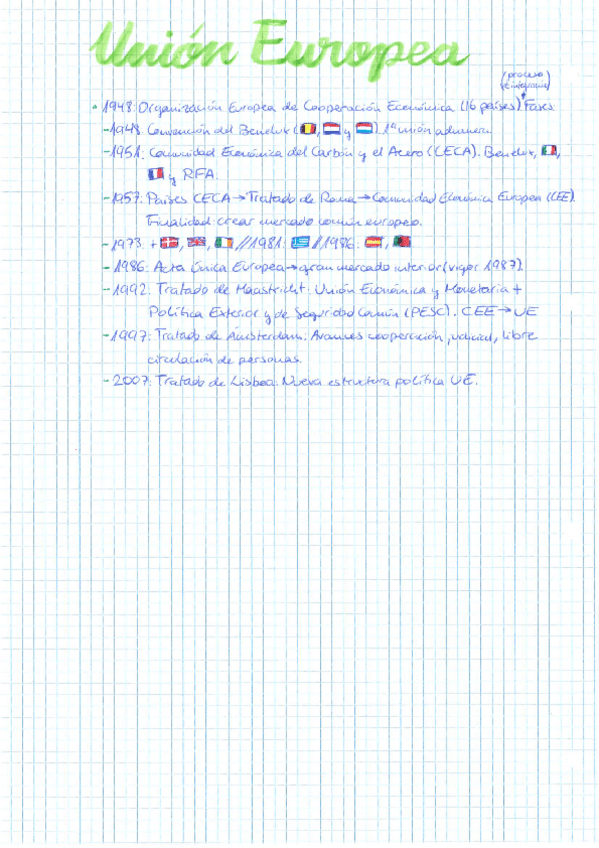 Unión Europea
(proceso
integración)
• 1948: Organización Europea de Cooperación Económica (16 países) Fases:
- 1948: Convención del Benelux ( , y ). 1ª unión aduanera.
- 1951: Comunidad Económica del Carbón y el Acero (CECA). Benelux, ,
y RFA.
- 1957: Países CECA → Tratado de Roma → Comunidad Económica Europea (CEE).
Finalidad: crear mercado común europeo.
- 1973: + , , // 1981: // 1986: ,
- 1986: Acta Única Europea → gran mercado interior (vigor 1987)
- 1992: Tratado de Maastricht: Unión Económica y Monetaria +
Política Exterior y de Seguridad Común (PESC). CEE → UE
- 1997: Tratado de Ámsterdam: Avances cooperación judicial, libre
circulación de personas.
- 2007: Tratado de Lisboa: Nueva estructura política UE.